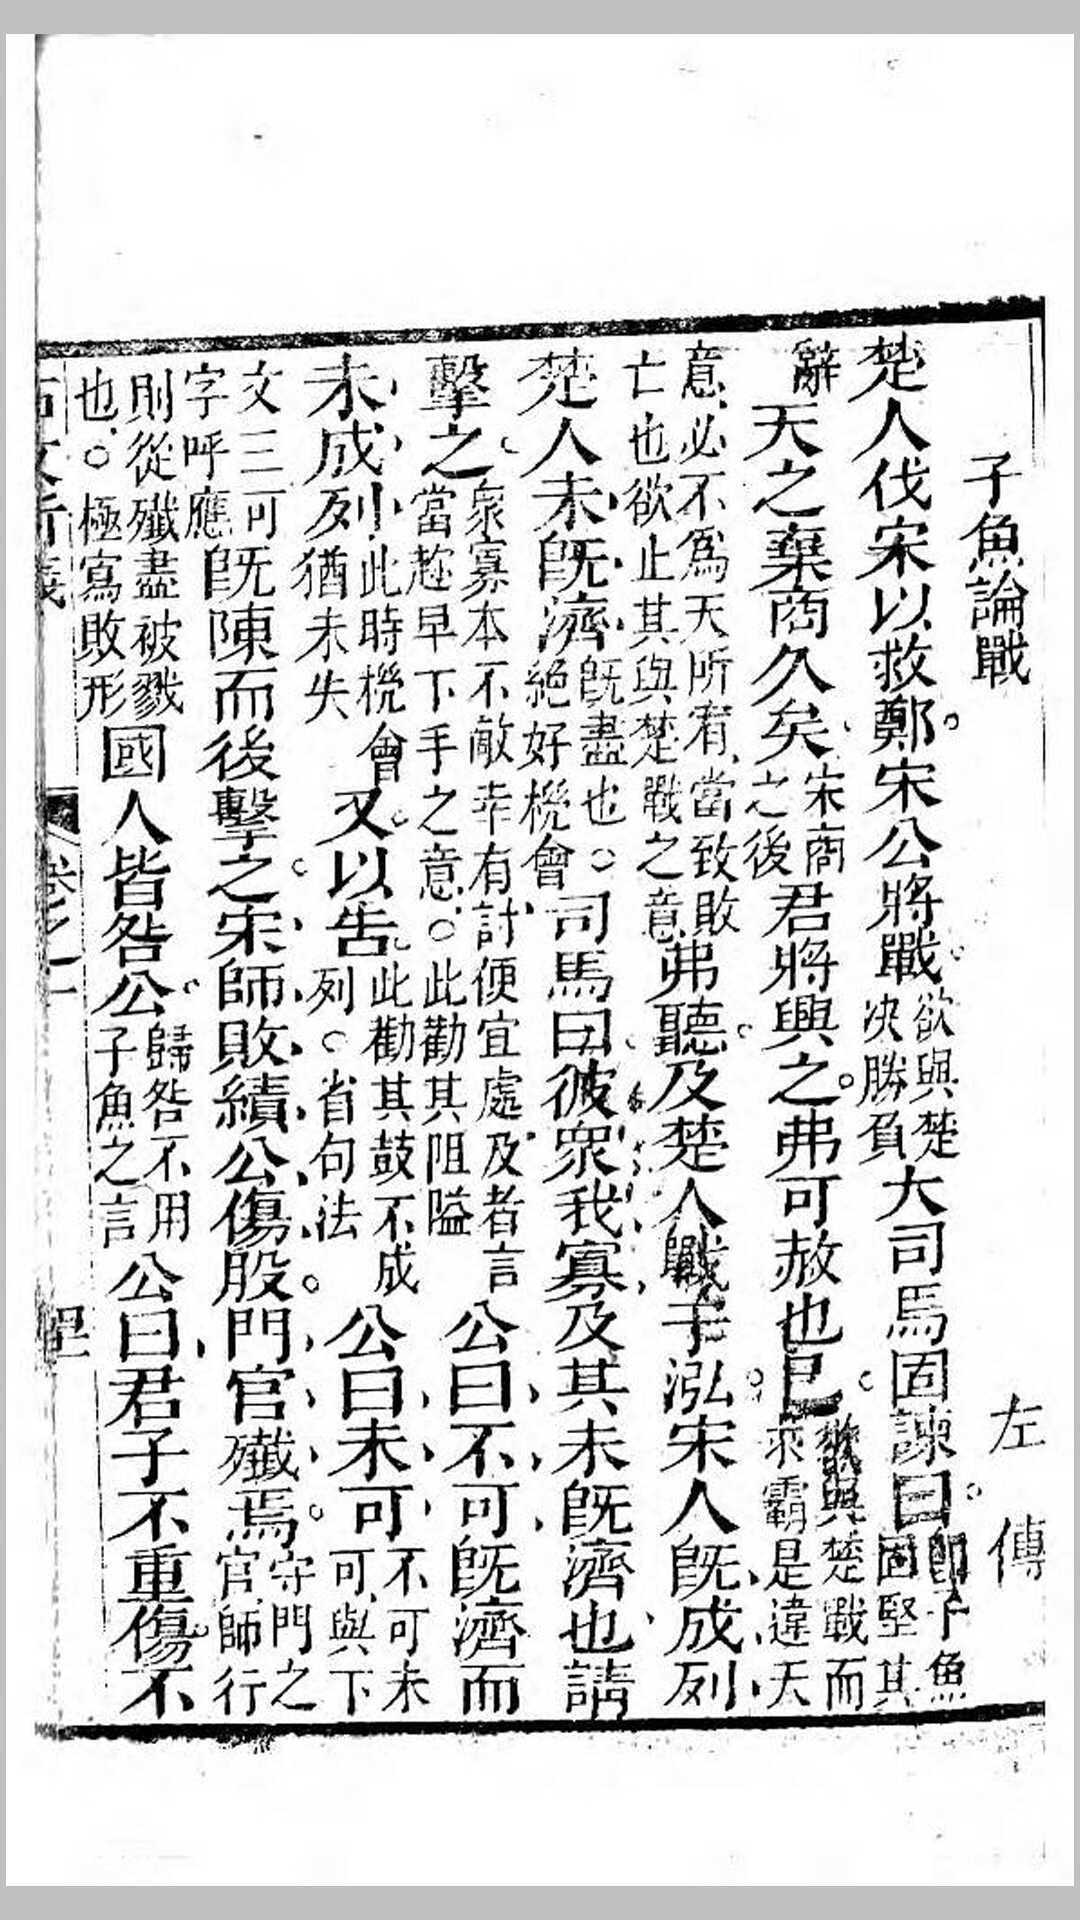 子魚論戰 左傳
楚人伐宋以救鄭宋公將戰欲與楚決勝負大司馬固諫曰卽子魚固堅其
辭天之棄商久矣宋商之後君將興之弗可赦也已欲與楚戰而求霸是違天
意必不爲天所宥當致敗亡也欲止其與楚戰之意弗聽及楚人戰于泓宋人旣成列
楚人未旣濟旣盡也○絕好機會司馬曰彼眾我寡及其未旣濟也請
擊之眾寡本不敵幸有討便宜處及者言當趂早下手之意○此勸其阻隘公曰不可旣濟而
未成列此時機會猶未失又以告此勸其鼓不成列○省句法公曰未可不可未可與下
文三可字呼應旣陳而後擊之宋師敗績公傷股門官殲焉守門之官師行
則從殲盡被戮也○極寫敗形國人皆咎公歸咎不用子魚之言公曰君子不重傷不
卷之一